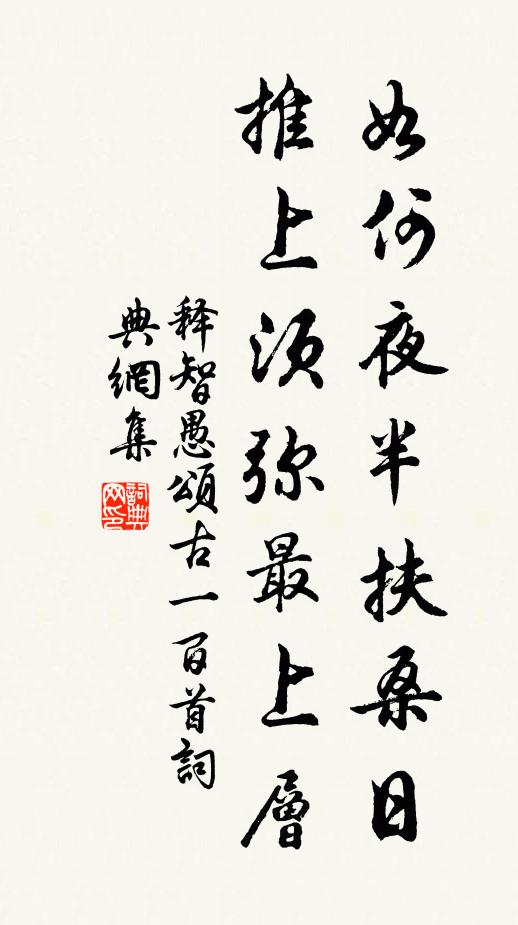 如何夜半扶桑日
推上须弥最上層
释智愚頌古一百首詞
典網集
詞典
网印